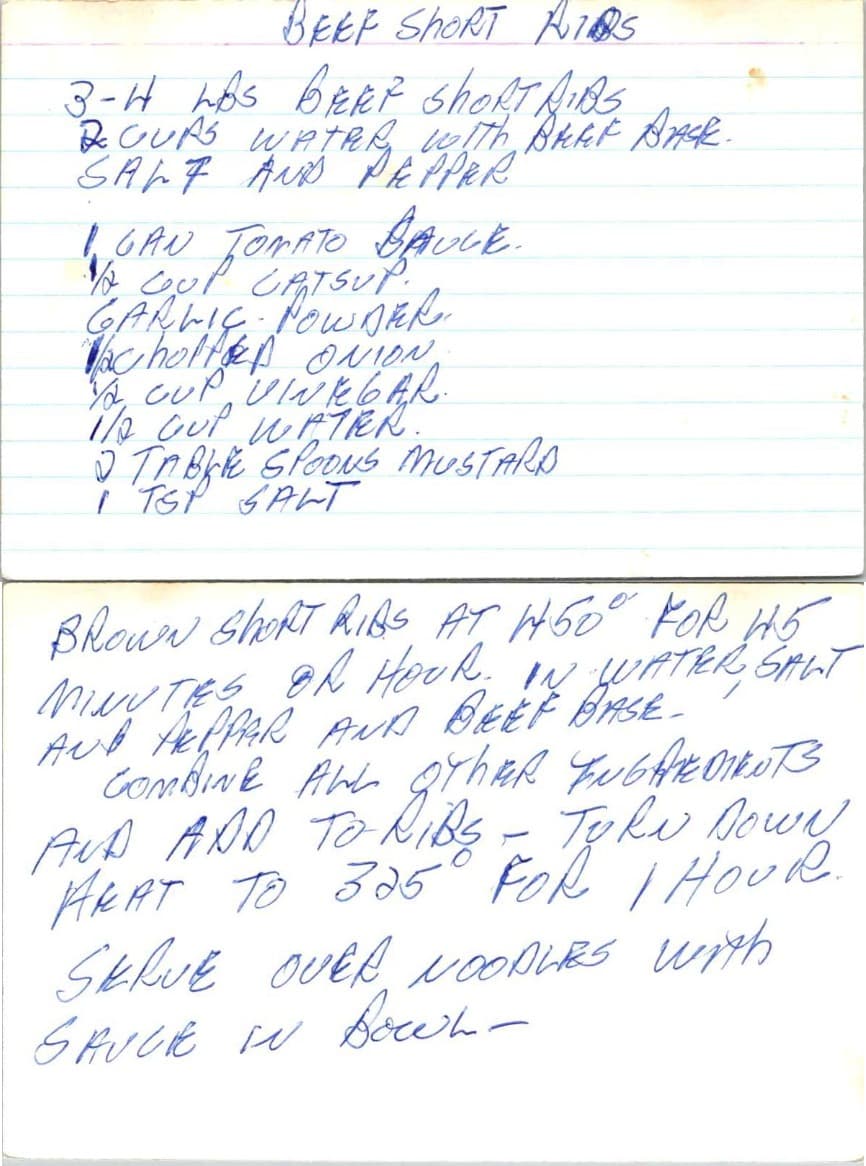 BEEF SHORT RIBS
3-4 LBS BEEF SHORT RIBS
2 CUPS WATER WITH BEEF BASE.
SALT AND PEPPER
1 CAN TOMATO SAUCE.
1/2 CUP CATSUP.
GARLIC POWDER.
1/2 CHOPPED ONION
1/2 CUP VINEGAR.
1/2 CUP WATER.
2 TABLE SPOONS MUSTARD
1 TSP SALT
BROWN SHORT RIBS AT 450° FOR 45
MINUTES OR HOUR. IN WATER, SALT
AND PEPPER AND BEEF BASE-
COMBINE ALL OTHER INGREDIENTS
AND ADD TO RIBS - TURN DOWN
HEAT TO 325° FOR 1 HOUR.
SERVE OVER NOODLES WITH
SAUCE IN BOWL-